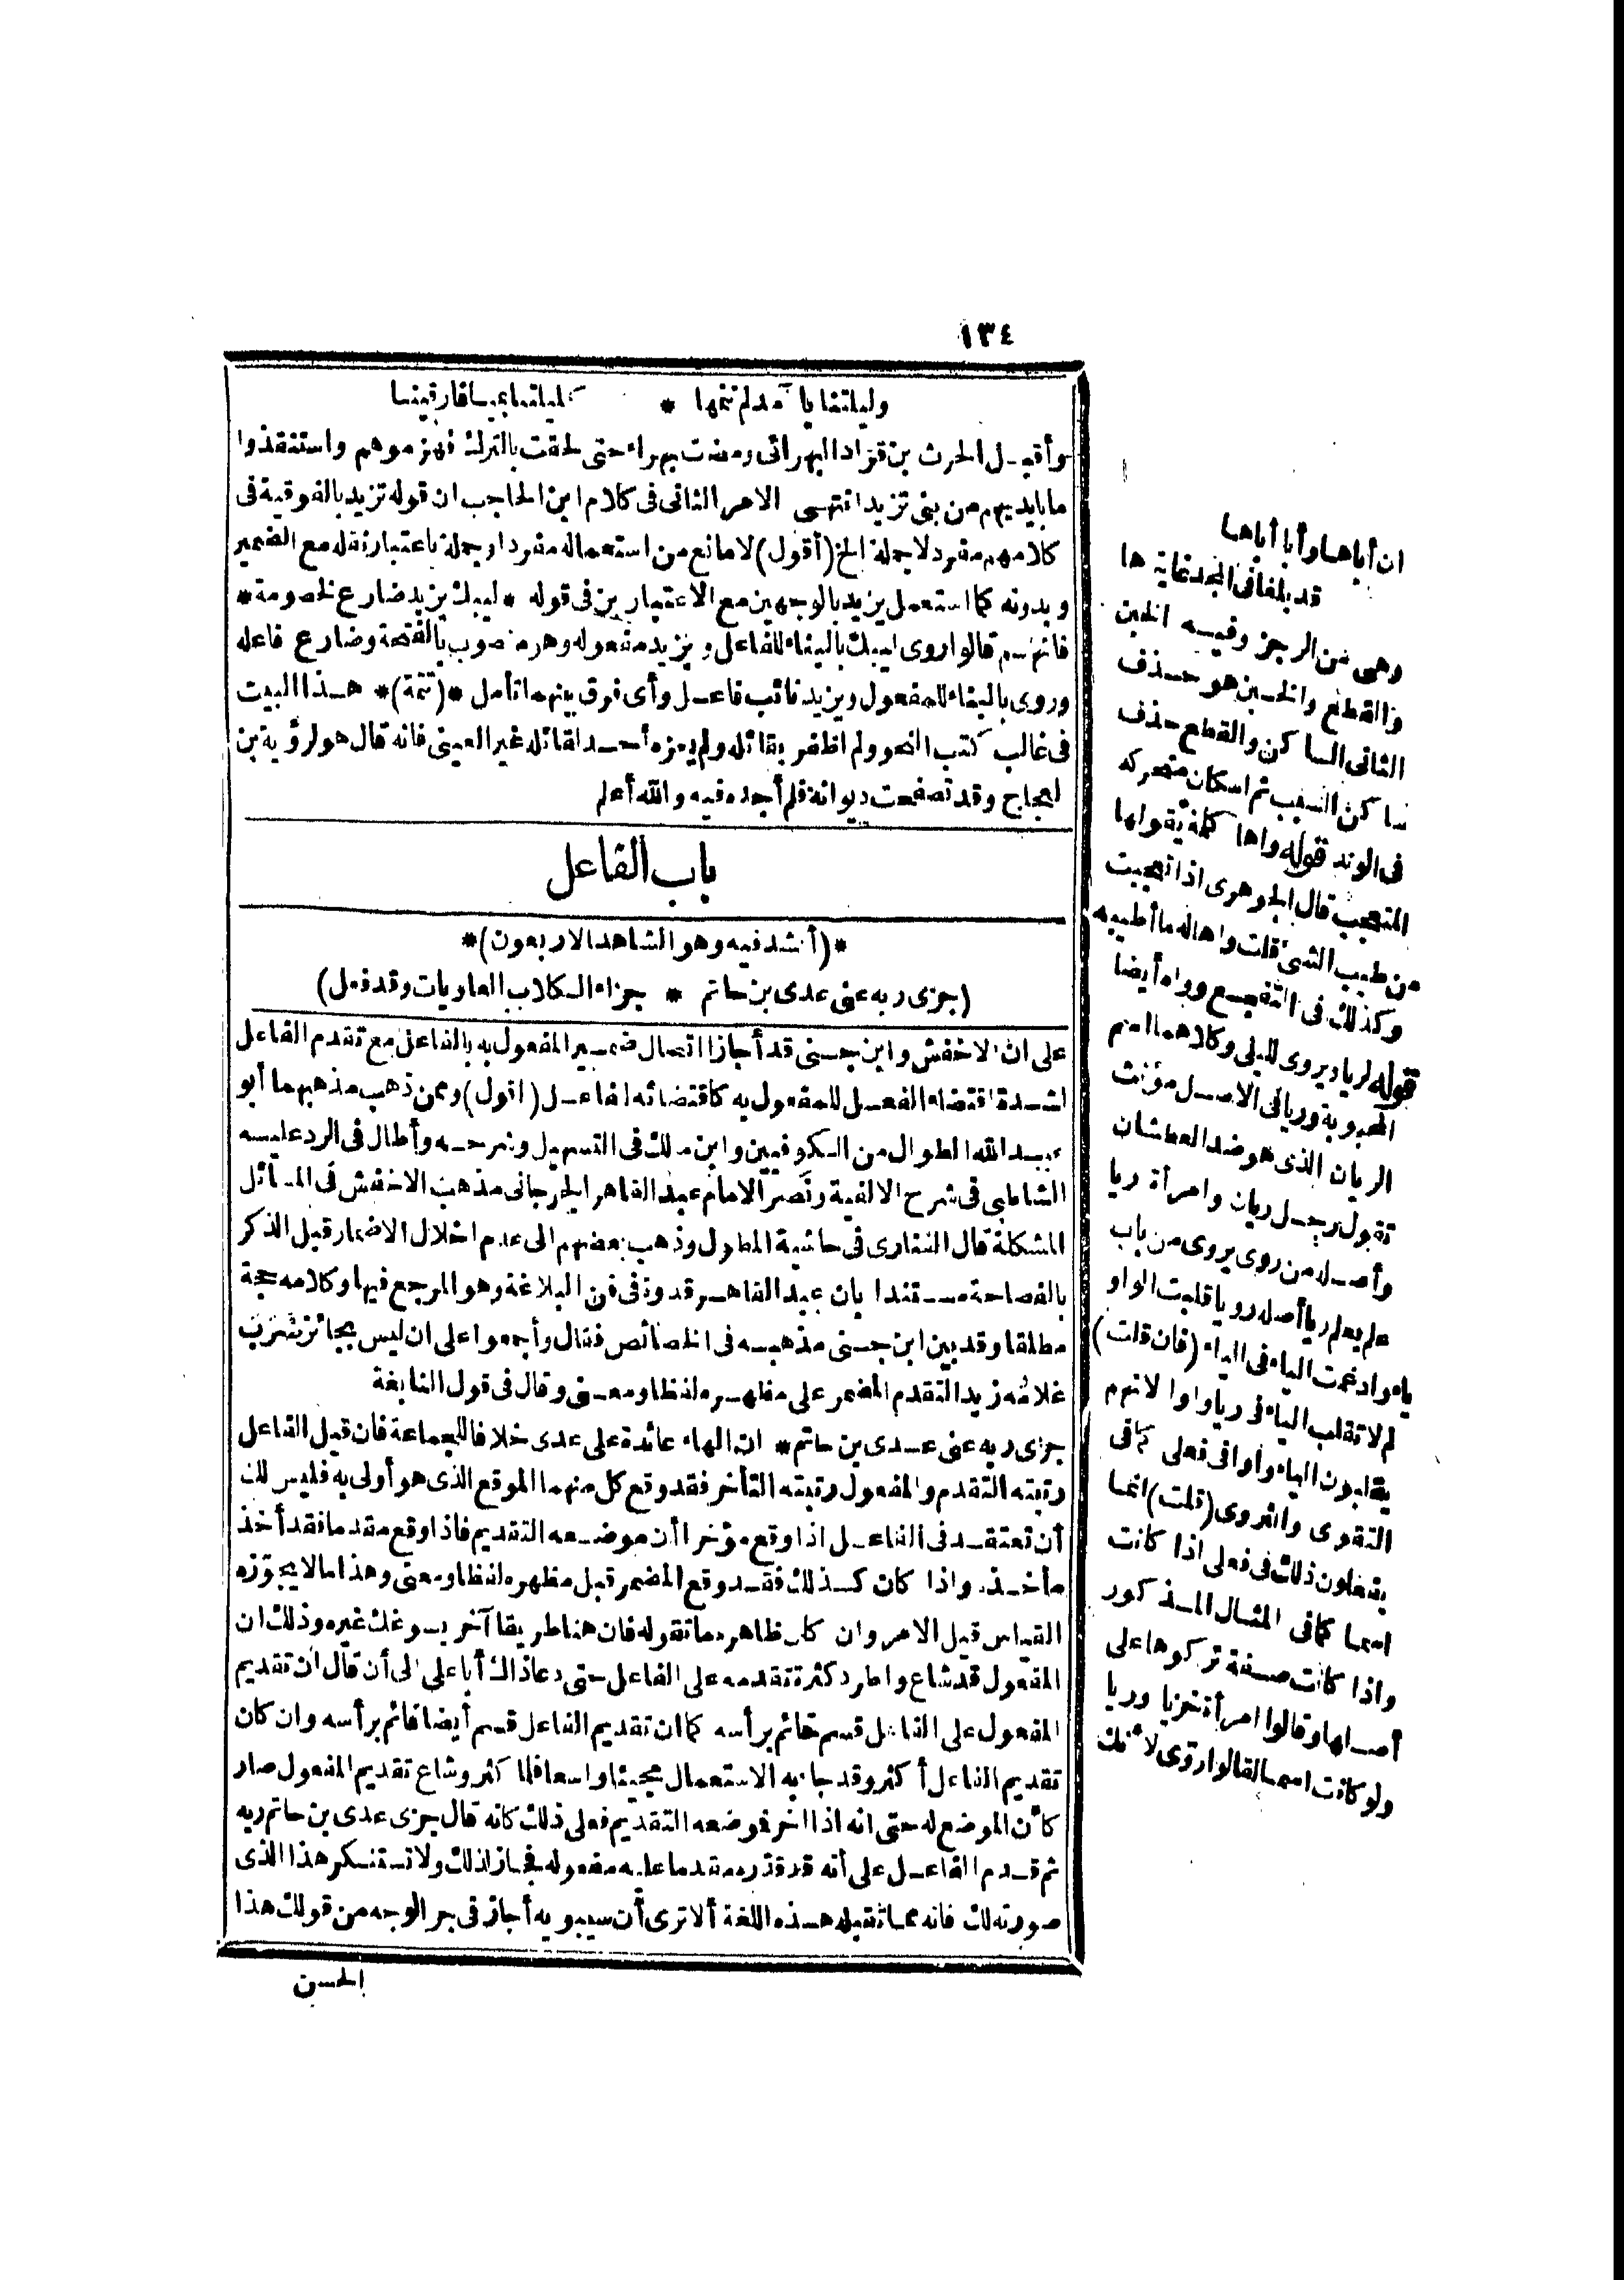 ١٣٤
وليلتنا بآمد لم ننمها * كليلتنا بميافارقينا
وأقبل الحرث بن قراد البهرانى ومضت بهراء حتى لحقت بالترك فهزموهم واستنقذوا
ما بايديهم من بنى تزيد انتهى الامر الثانى فى كلام ابن الحاجب ان قوله تزيد بالفوقية فى
كلامهم مفرد لا جملة الخ (أقول) لا مانع من استعماله مفردا وجملة باعتبار نقله مع الضمير
وبدونه كما استعمل يزيد بالوجهين مع الاعتبارين فى قوله * ليبك يزيد ضارع لخصومة *
فانهم قالوا روى ليبك بالبناء للفاعل ويزيد مفعوله وهو منصوب بالفتحة وضارع فاعله
وروى بالبناء للمفعول ويزيد نائب فاعل وأى فرق بينهما تأمل *(تتمة)* هذا البيت
فى غالب كتب النحو ولم اظفر بقائله ولم يعزه أحد لقائله غير العينى فانه قال هو لرؤبة بن
العجاج وقد تصفحت ديوانه فلم أجده فيه والله أعلم
باب الفاعل
*(أنشد فيه وهو الشاهد الاربعون)*
(جزى ربه عنى عدى بن حاتم * جزاء الكلاب العاويات وقد فعل)
على ان الاخفش وابن جنى قد أجازا اتصال ضمير المفعول به بالفاعل مع تقدم الفاعل
لشدة اقتضاء الفعل للمفعول به كاقتضائه للفاعل (اقول) وممن ذهب مذهبهما أبو
عبد الله الطوال من الكوفيين وابن مالك فى التسهيل وشرحه وأطال فى الرد عليه
الشاطبى فى شرح الالفية ونصر الامام عبد القاهر الجرجانى مذهب الاخفش فى المسائل
المشكلة قال الفنارى فى حاشية المطول وذهب بعضهم الى عدم اخلال الاضمار قبل الذكر
بالفصاحة مستندا بان عبد القاهر قدوة فى فن البلاغة وهو المرجع فيها وكلامه حجة
مطلقا وقد بين ابن جنى مذهبه فى الخصائص فقال وأجمعوا على ان ليس بجائز ضرب
غلامه زيدا لتقدم المضمر على مظهره لفظا ومعنى وقال فى قول النابغة
جزى ربه عنى عدى بن حاتم * ان الهاء عائدة على عدى خلافا للجماعة فان قيل الفاعل
رتبته التقدم والمفعول رتبته التأخر فقد وقع كل منهما الموقع الذى هو أولى به فليس لك
أن تعتقد فى الفاعل اذا وقع مؤخرا أن موضعه التقديم فاذا وقع مقدما فقد أخذ
مأخذه واذا كان كذلك فقد وقع المضمر قبل مظهره لفظا ومعنى وهذا ما لا يجوزه
القياس قيل الامر وان كان ظاهره ما تقوله فان هنا طريقا آخر يسوغك غيره وذلك ان
المفعول قد شاع واطرد كثرة تقدمه على الفاعل حتى دعا ذاك أبا على الى أن قال ان تقديم
المفعول على الفاعل قسم قائم برأسه كما ان تقديم الفاعل قسم أيضا قائم برأسه وان كان
تقديم الفاعل أكثر وقد جاء به الاستعمال مجيئا واسعا فلما كثر وشاع تقديم المفعول صار
كأن الموضع له حتى انه اذا اخر فموضعه التقديم فعلى ذلك كانه قال جزى عدى بن حاتم ربه
ثم قدم الفاعل على أنه قد قدره مقدما عليه مفعوله فجاز لذلك ولا تستنكر هذا الذى
صورته لك فانه مما تقبله هذه اللغة ألا ترى أن سيبويه أجاز فى جر الوجه من قولك هذا
الحسن
ان أباها وأبا أباها
قد بلغا فى المجد غايتاها
وهى من الرجز وفيه الخبن
والقطع والخبن هو حذف
الثانى الساكن والقطع حذف
ساكن السبب ثم اسكان متحركه
فى الوتد قوله واها كلمة يقولها
المتعجب قال الجوهرى اذا تعجبت
من طيب الشئ قلت واها له ما أطيبه
وكذلك فى التفجع وواه أيضا
قوله لريا ويروى لليلى وكلاهما اسم
المحبوبة وريا فى الاصل مؤنث
الريان الذى هو ضد العطشان
تقول رجل ريان وامرأة ريا
وأصله من روى يروى من باب
علم يعلم ريا أصله رويا قلبت الواو
ياء وادغمت الياء فى الياء (فان قلت)
لم لا تقلب الياء فى ريا واوا لانهم
يقلبون الياء واوا فى فعلى كما فى
التقوى والشروى (قلت) انما
يفعلون ذلك فى فعلى اذا كانت
اسما كما فى المثال المذكور
واذا كانت صفة تركوها على
أصلها وقالوا امرأة خزيا وريا
ولو كانت اسما لقالوا روى لأنك